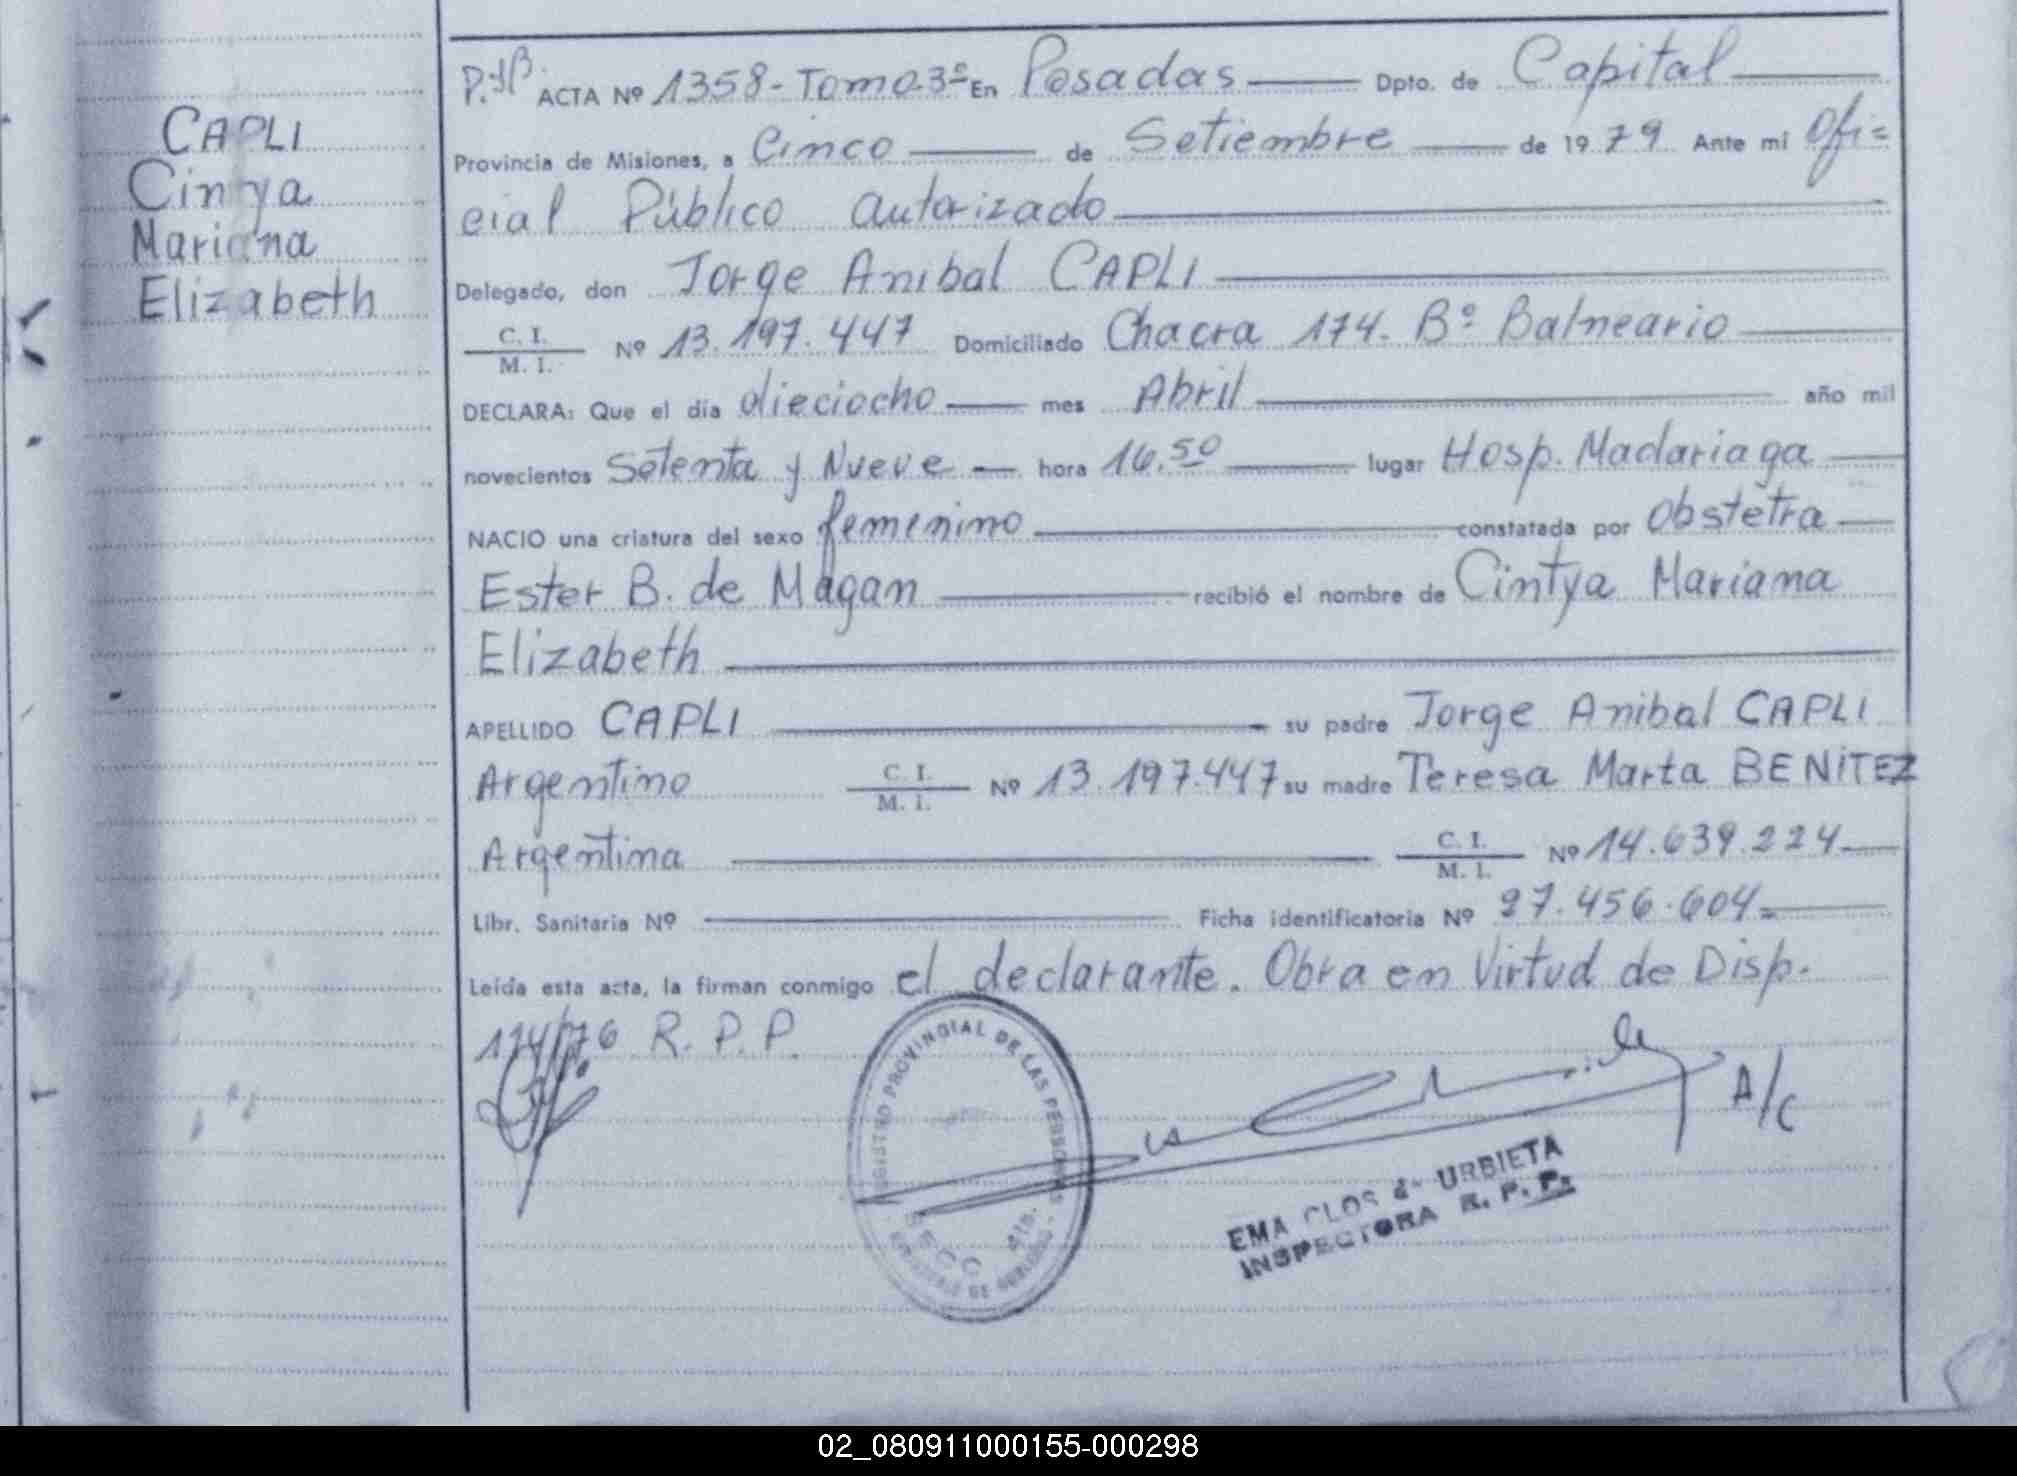 CAPLI
Cintya
Mariana
Elizabeth
ACTA Nº 1358- Tomo 3º En Posadas Dpto. de Capital
Provincia de Misiones, a Cinco de Setiembre de 1979 Ante mi Ofi=
cial Público autorizado
Delegado, don Jorge Anibal CAPLI
C. I.
M. I. Nº 13.197.447 Domiciliado Chacra 174. Bº Balneario
DECLARA: Que el día dieciocho mes Abril año mil
novecientos Setenta y Nueve hora 16.50 lugar Hosp. Madariaga
NACIO una criatura del sexo femenino constatada por Obstetra
Ester B. de Magan recibió el nombre de Cintya Mariana
Elizabeth
APELLIDO CAPLI su padre Jorge Anibal CAPLI
Argentino C. I.
M. I. Nº 13.197.447 su madre Teresa Marta BENITEZ
Argentina C. I.
M. I. Nº 14.639.224
Libr. Sanitaria Nº Ficha identificatoria Nº 27.456.604=
Leída esta acta, la firman conmigo el declarante. Obra en Virtud de Disp.
174/76 R. P. P.
REGISTRO PROVINCIAL DE LAS PERSONAS
SECC 4ta.
A/C
EMA CLOS de URBIETA
INSPECTORA R. P. P.
02_080911000155-000298